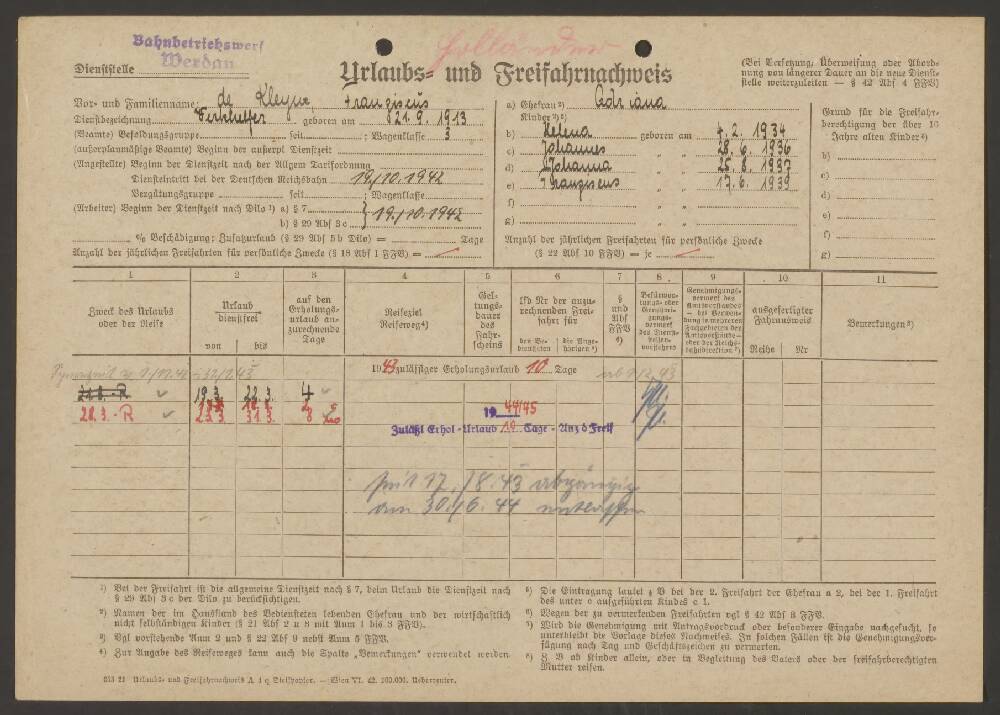 Bahnbetriebswerk
Werdau
Holländer
Dienststelle
Urlaubs- und Freifahrnachweis
(Bei Versetzung, Überweisung oder Abord-
nung von längerer Dauer an die neue Dienst-
stelle weiterzuleiten — § 42 Abs 4 FFV)
Vor- und Familienname: de Kleyne Franziscus
Dienstbezeichnung geboren am 21.9.1913
(Beamte) Besoldungsgruppe seit ; Wagenklasse 3
(außerplanmäßige Beamte) Beginn der außerpl Dienstzeit
(Angestellte) Beginn der Dienstzeit nach der Allgem Tarifordnung
Diensteintritt bei der Deutschen Reichsbahn 19./10.1942
Vergütungsgruppe seit ; Wagenklasse
(Arbeiter) Beginn der Dienstzeit nach Dilo ¹) a) § 7
b) § 29 Abs 3 c } 19./10.1942
% Beschädigung: Zusatzurlaub (§ 29 Abs 5 b Dilo) = Tage
Anzahl der jährlichen Freifahrten für persönliche Zwecke (§ 18 Abs 1 FFV) =
a) Ehefrau ²) Adriana
Kinder ²) ³)
b) Helena geboren am 4.2. 1934
c) Johannes " " 28.6. 1936
d) Johanna " " 25.8. 1937
e) Franziscus " " 17.6. 1939
f) " "
g) " "
Anzahl der jährlichen Freifahrten für persönliche Zwecke
(§ 22 Abs 10 FFV) = je
Grund für die Freifahr-
berechtigung der über 16
Jahre alten Kinder ⁴)
b)
c)
d)
e)
f)
g)
1 2 3 4 5 6 7 8 9 10 11
Zweck des Urlaubs
oder der Reise
Urlaub
dienstfrei
von bis
auf den
Erholungs-
urlaub an-
zurechnende
Tage
Reiseziel
Reiseweg ⁴)
Gel-
tungs-
dauer
des
Fahr-
scheins
lfd Nr der anzu-
rechnenden Frei-
fahrt für
den Be-
diensteten
die Ange-
hörigen ⁵)
§
und
Abs
FFV
⁶)
Befürwor-
tungs- oder
Genehmi-
gungs-
vermerk des
Dienst-
stellen-
vorstehers
Genehmigungs-
vermerk des
Amtsvorstandes
ausgefertigter
Fahrausweis
Reihe Nr
Bemerkungen ⁸)
1943 zulässiger Erholungsurlaub 10 Tage ab 1/2.43
21.3.-R 19.3. 22.3. 4
28.3.-R 31.3. 8
19 44/45
Zuläßl Erhol-Urlaub 10 Tage - Anz d Freif
seit 17./8.43 abgängig
am 30./6.44 entlassen
¹) Bei der Freifahrt ist die allgemeine Dienstzeit nach § 7, beim Urlaub die Dienstzeit nach
§ 29 Abs 3 c der Dilo zu berücksichtigen.
²) Namen der im Hausstand des Bediensteten lebenden Ehefrau und der wirtschaftlich
nicht selbständigen Kinder (§ 21 Abs 2 u 8 mit Anm 1 bis 3 FFV).
³) Vgl vorstehende Anm 2 und § 22 Abs 9 nebst Anm 5 FFV.
⁴) Zur Angabe des Reiseweges kann auch die Spalte „Bemerkungen" verwendet werden.
⁵) Die Eintragung lautet z B bei der 2. Freifahrt der Ehefrau a 2, bei der 1. Freifahrt
des unter c aufgeführten Kindes c 1.
⁶) Wegen der zu vermerkenden Freifahrten vgl § 42 Abs 3 FFV.
⁷) Wird die Genehmigung mit Antragsvordruck oder besonderer Eingabe nachgesucht, so
unterbleibt die Vorlage dieses Nachweises. In solchen Fällen ist die Genehmigungsver-
fügung nach Tag und Geschäftszeichen zu vermerken.
⁸) Z B ob Kinder allein, oder in Begleitung des Vaters oder der freifahrberechtigten
Mutter reisen.
Urlaubs- und Freifahrnachweis A 4 q — Wien VI. 42. 200.000. Ueberreuter.